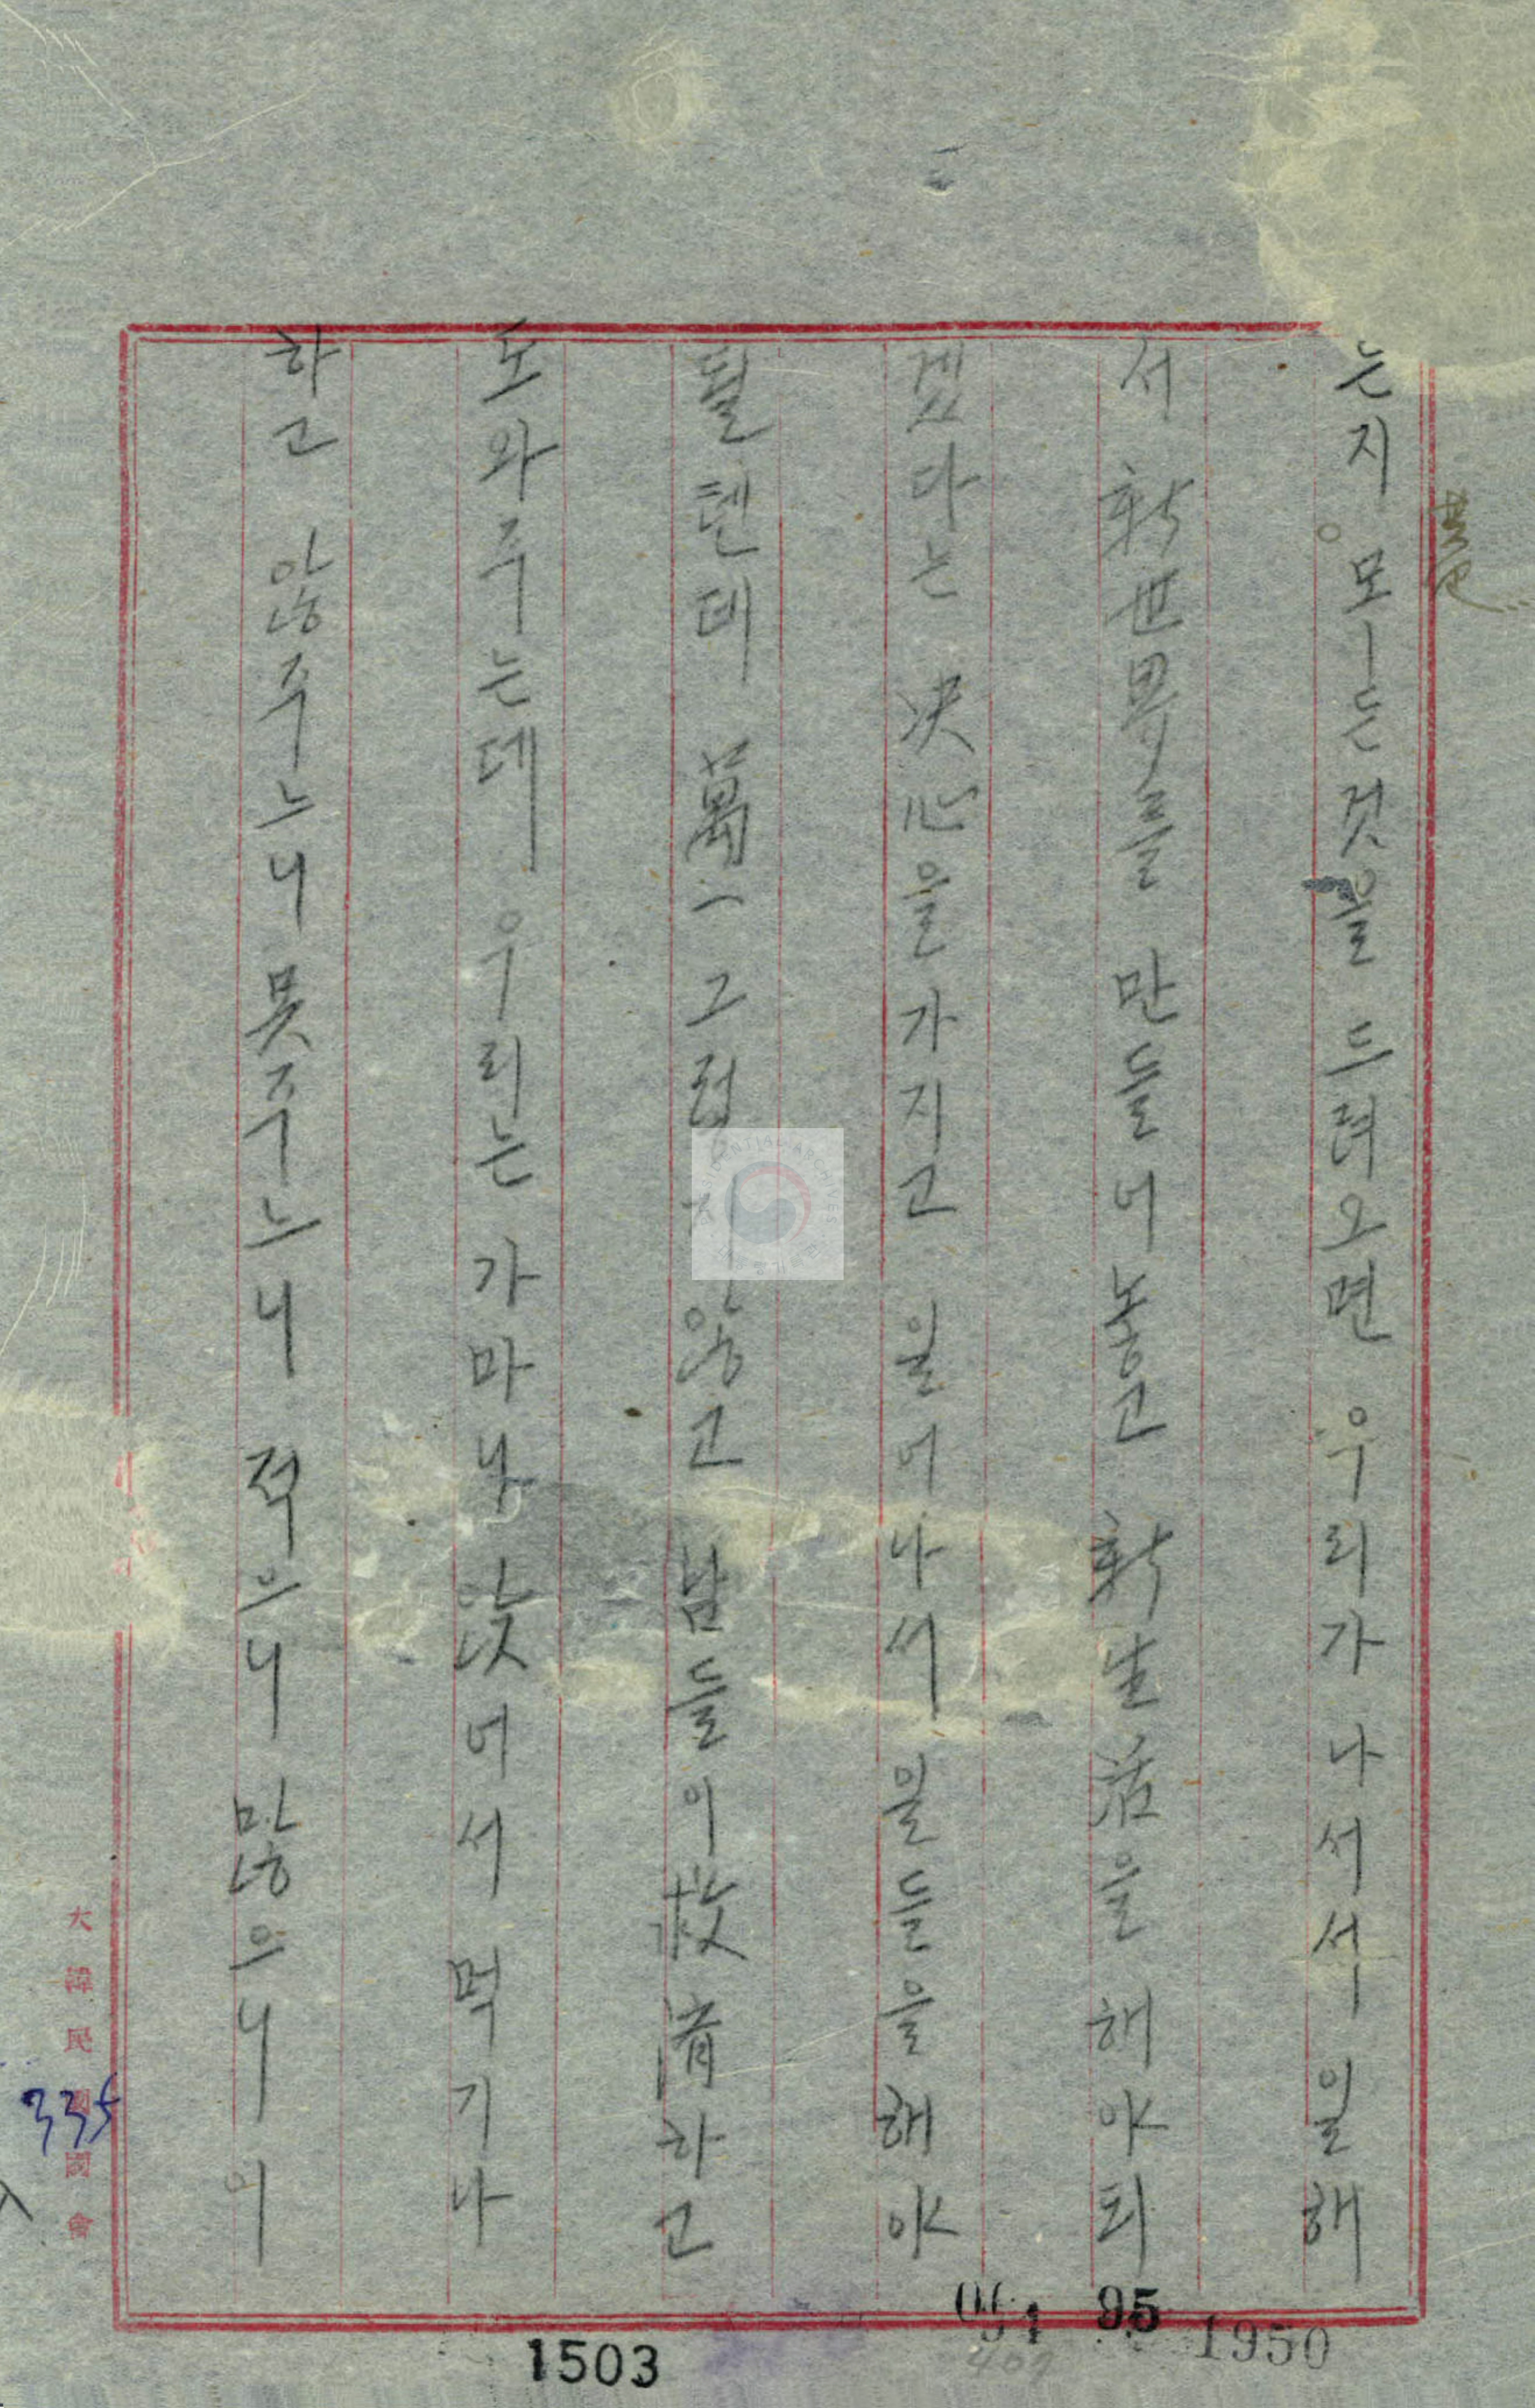 는지 모ー든 것을 드려오면 우리가 나서서 일해
서 新世界를 만들어 놓고 新生活을 해야 되
겠다는 決心을 가지고 일어나서 일들을 해야
될텐데 萬一 그렇지 않고 남들이 救濟하고
도와주는데 우리는 가마니 앉어서 먹기나
하고 않주느니 못주느니 적으니 많으니 이
大韓民國國會
335
1503
95
1950